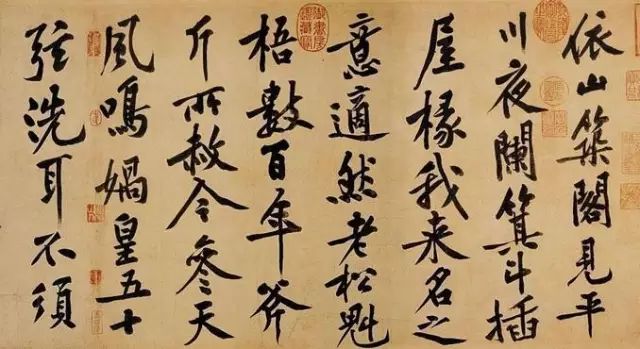 依山築閣見平
川夜闌箕斗插
屋椽我來名之
意適然老松魁
梧數百年斧
斤所赦今參天
風鳴媧皇五十
弦洗耳不須